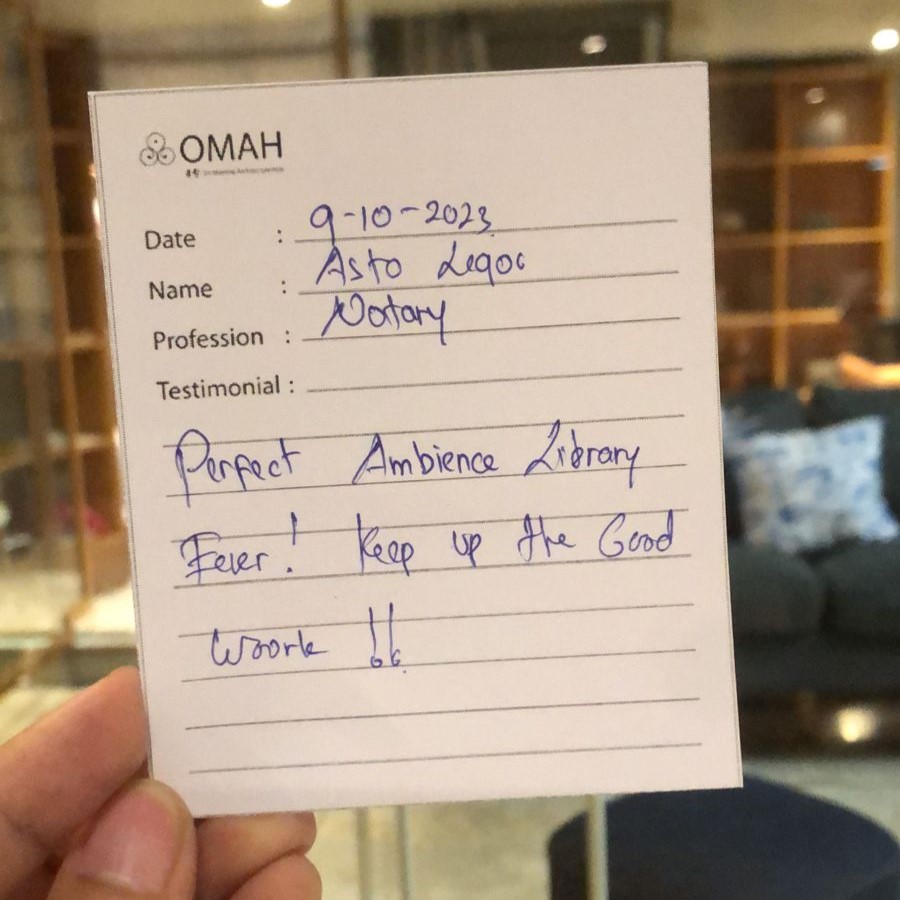 OMAH
Date : 9-10-2023
Name : Asto
Profession : Notary
Testimonial :
Perfect Ambience Library
Fever! Keep up the Good
Woork !!